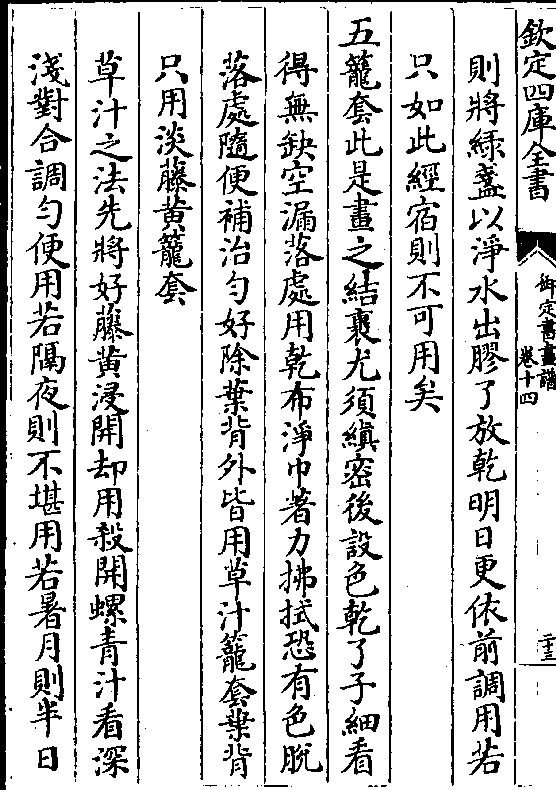 欽定四庫全書
御定書畫譜
卷十四
二十三
則將綠盞以淨水出膠了放乾明日更依前調用若
只如此經宿則不可用矣
五籠套此是畫之結裹尤須縝密後設色乾了子細看
得無缺空漏落處用乾布淨巾著力拂拭恐有色脫
落處隨便補治勻好除葉背外皆用草汁籠套葉背
只用淡藤黄籠套
草汁之法先將好藤黄浸開却用殺開螺青汁看深
淺對合調勻便用若隔夜則不堪用若暑月則半日